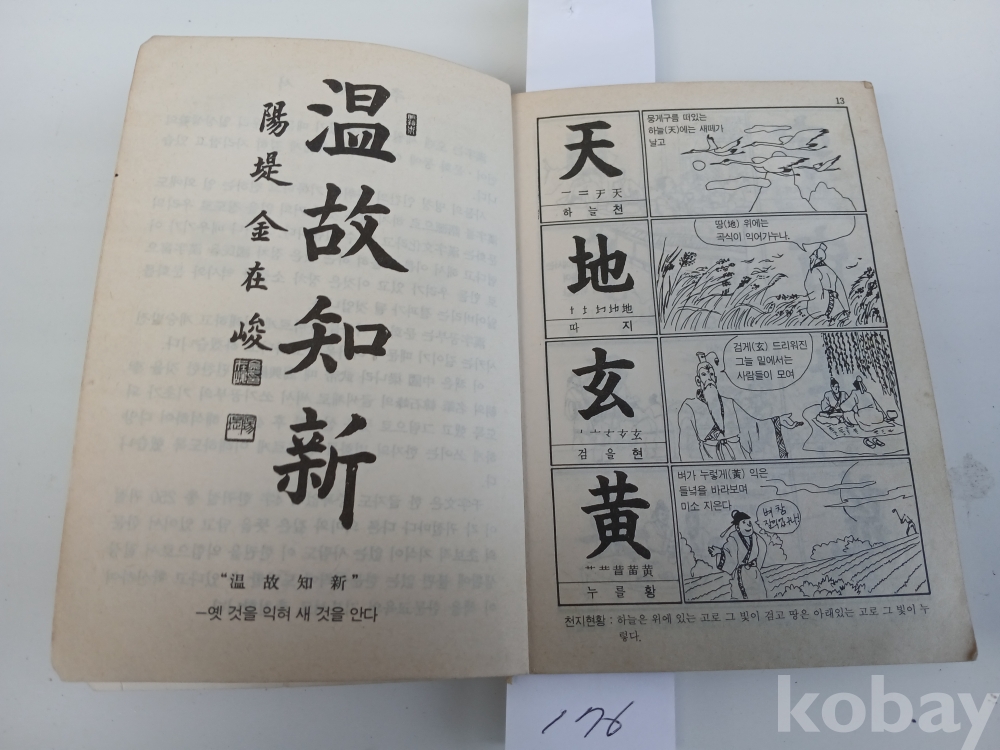 温故知新
陽堤 金在峻
“温故知新”
–옛 것을 익혀 새 것을 안다
13
天
一 二 天
하늘 천
뭉게구름 떠있는
하늘(天)에는 새떼가
날고
地
地
따 지
땅(地) 위에는
곡식이 익어가누나.
玄
玄
검을 현
검게(玄) 드리워진
그늘 밑에서는
사람들이 모여
黄
黄
누를 황
벼가 누렇게(黃) 익은
들녘을 바라보며
미소 지은다
벼 참
천지현황 : 하늘은 위에 있는 고로 그 빛이 검고 땅은 아래있는 고로 그 빛이 누
렇다.
176
kobay